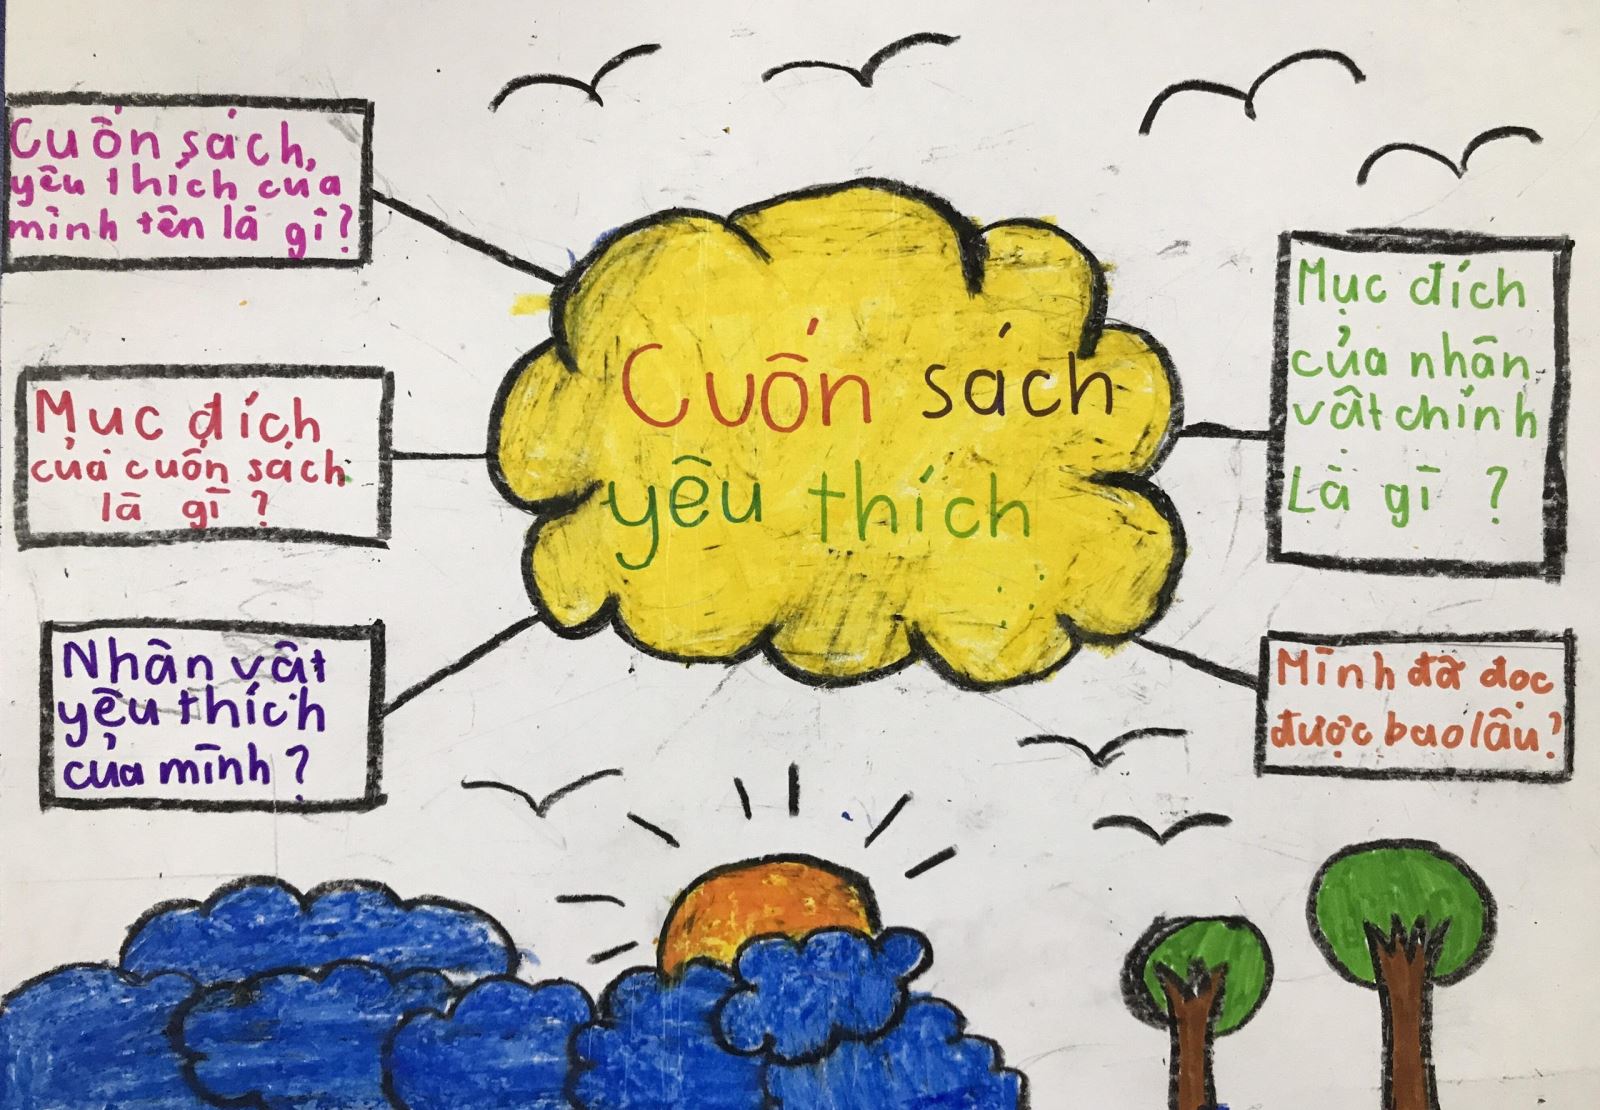 Cuốn sách
yêu thích
Cuốn sách,
yêu thích của
mình tên là gì?
Mục đích
của cuốn sách
là gì?
Nhân vật
yêu thích
của mình?
Mục đích
của nhân
vật chính
Là gì ?
Mình đã đọc
được bao lâu?